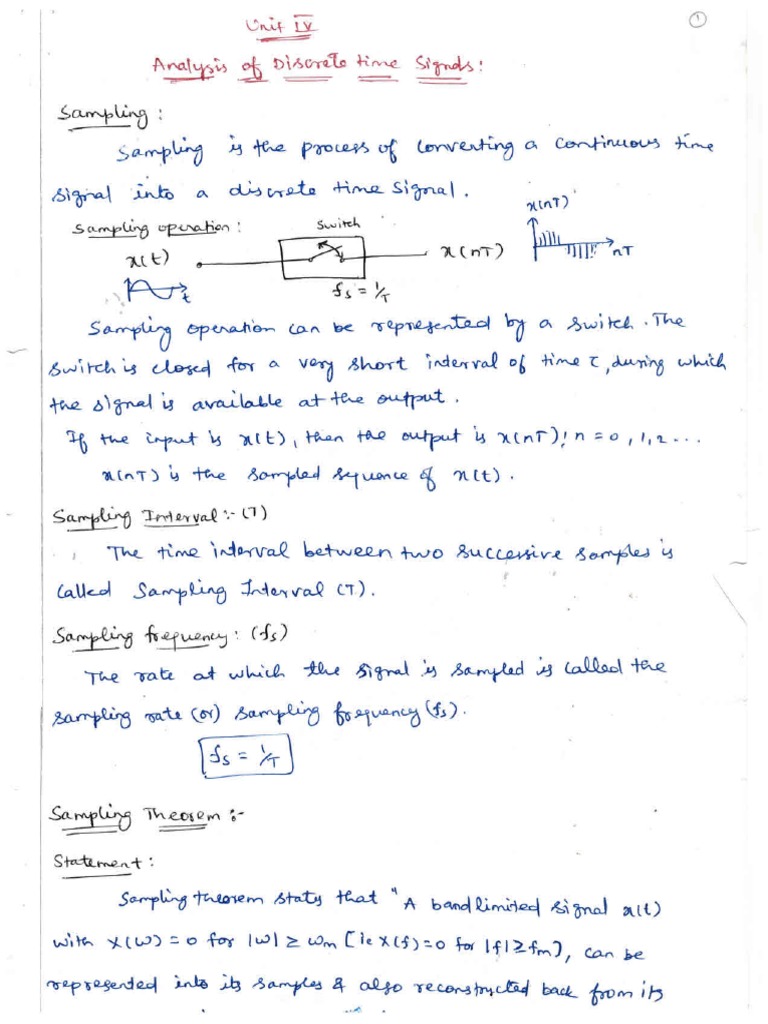 1
Unit IV
Analysis of Discrete time Signals:
Sampling:
Sampling is the process of converting a continuous time
signal into a discrete time signal.
Sampling operation:
Switch
x(t)
x(nT)
x(nT)
nT
t
fs = 1/T
Sampling operation can be represented by a switch. The
switch is closed for a very short interval of time τ, during which
the signal is available at the output.
If the input is x(t), then the output is x(nT); n = 0, 1, 2 ...
x(nT) is the sampled sequence of x(t).
Sampling Interval:- (T)
The time interval between two successive samples is
called Sampling Interval (T).
Sampling frequency: (fs)
The rate at which the signal is sampled is called the
sampling rate (or) sampling frequency (fs).
fs = 1/T
Sampling Theorem:-
Statement:
Sampling theorem states that "A bandlimited signal x(t)
with X(ω) = 0 for |ω| ≥ ωm [ie X(f) = 0 for |f| ≥ fm], can be
represented into its samples & also reconstructed back from its